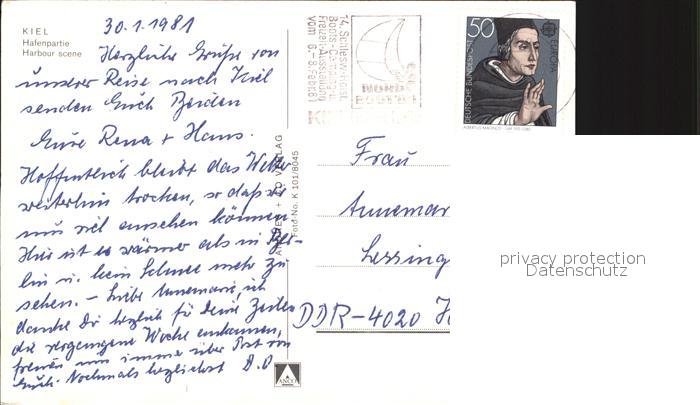 KIEL
Hafenpartie
Harbour scene
30.1.1981
Herzliche Grüße von
unserer Reise nach Kiel
senden Euch Beiden
Eure Rena + Hans.
Hoffentlich bleibt das Wetter
weiterhin trocken, so daß wir
uns viel ansehen können.
Hier ist es wärmer als in Ber-
lin u. kein Schnee mehr zu
sehen. – Liebe Annemarie, ich
danke Dir herzlich für Deine Zeilen
die vergangene Woche ankamen,
freuen uns immer über Post von
Euch. Nochmals herzlichst D.O.
14. Schlesw.-Holst.
Boots-
Freizeit-Ausstellung
vom 6.-8. Febr. 81
50
DEUTSCHE BUNDESPOST
EUROPA
ALBERTUS MAGNUS
VERLAG
Foto-No. K 101/8045
ANCO
Frau
Annemar
Lessing
DDR-4020 H
privacy protection
Datenschutz